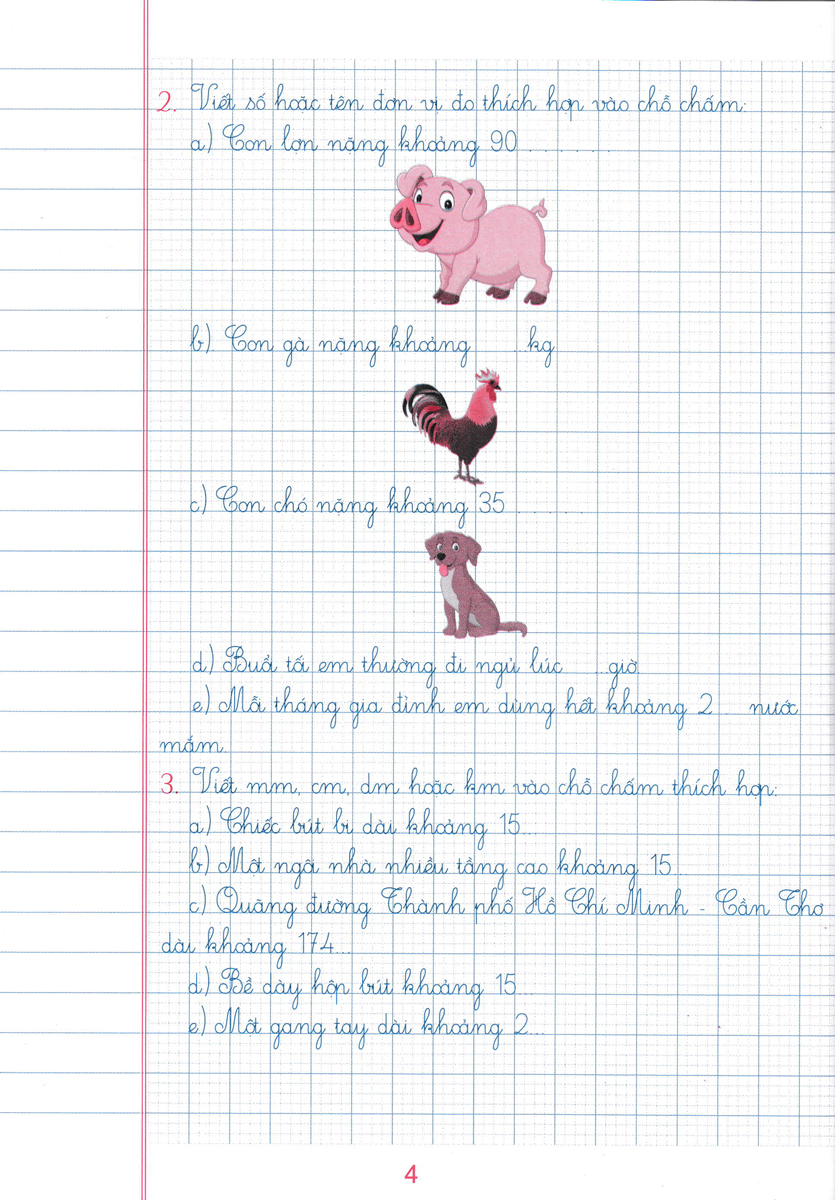 2. Viết số hoặc tên đơn vị đo thích hợp vào chỗ chấm:
a) Con lợn nặng khoảng 90..........
b) Con gà nặng khoảng ......kg
c) Con chó nặng khoảng 35..........
d) Buổi tối em thường đi ngủ lúc ......giờ.
e) Mỗi tháng gia đình em dùng hết khoảng 2.... nước
mắm.
3. Viết mm, cm, dm hoặc km vào chỗ chấm thích hợp:
a) Chiếc bút bi dài khoảng 15...
b) Một ngôi nhà nhiều tầng cao khoảng 15...
c) Quãng đường Thành phố Hồ Chí Minh - Cần Thơ
dài khoảng 174...
d) Bề dày hộp bút khoảng 15...
e) Một gang tay dài khoảng 2...
4